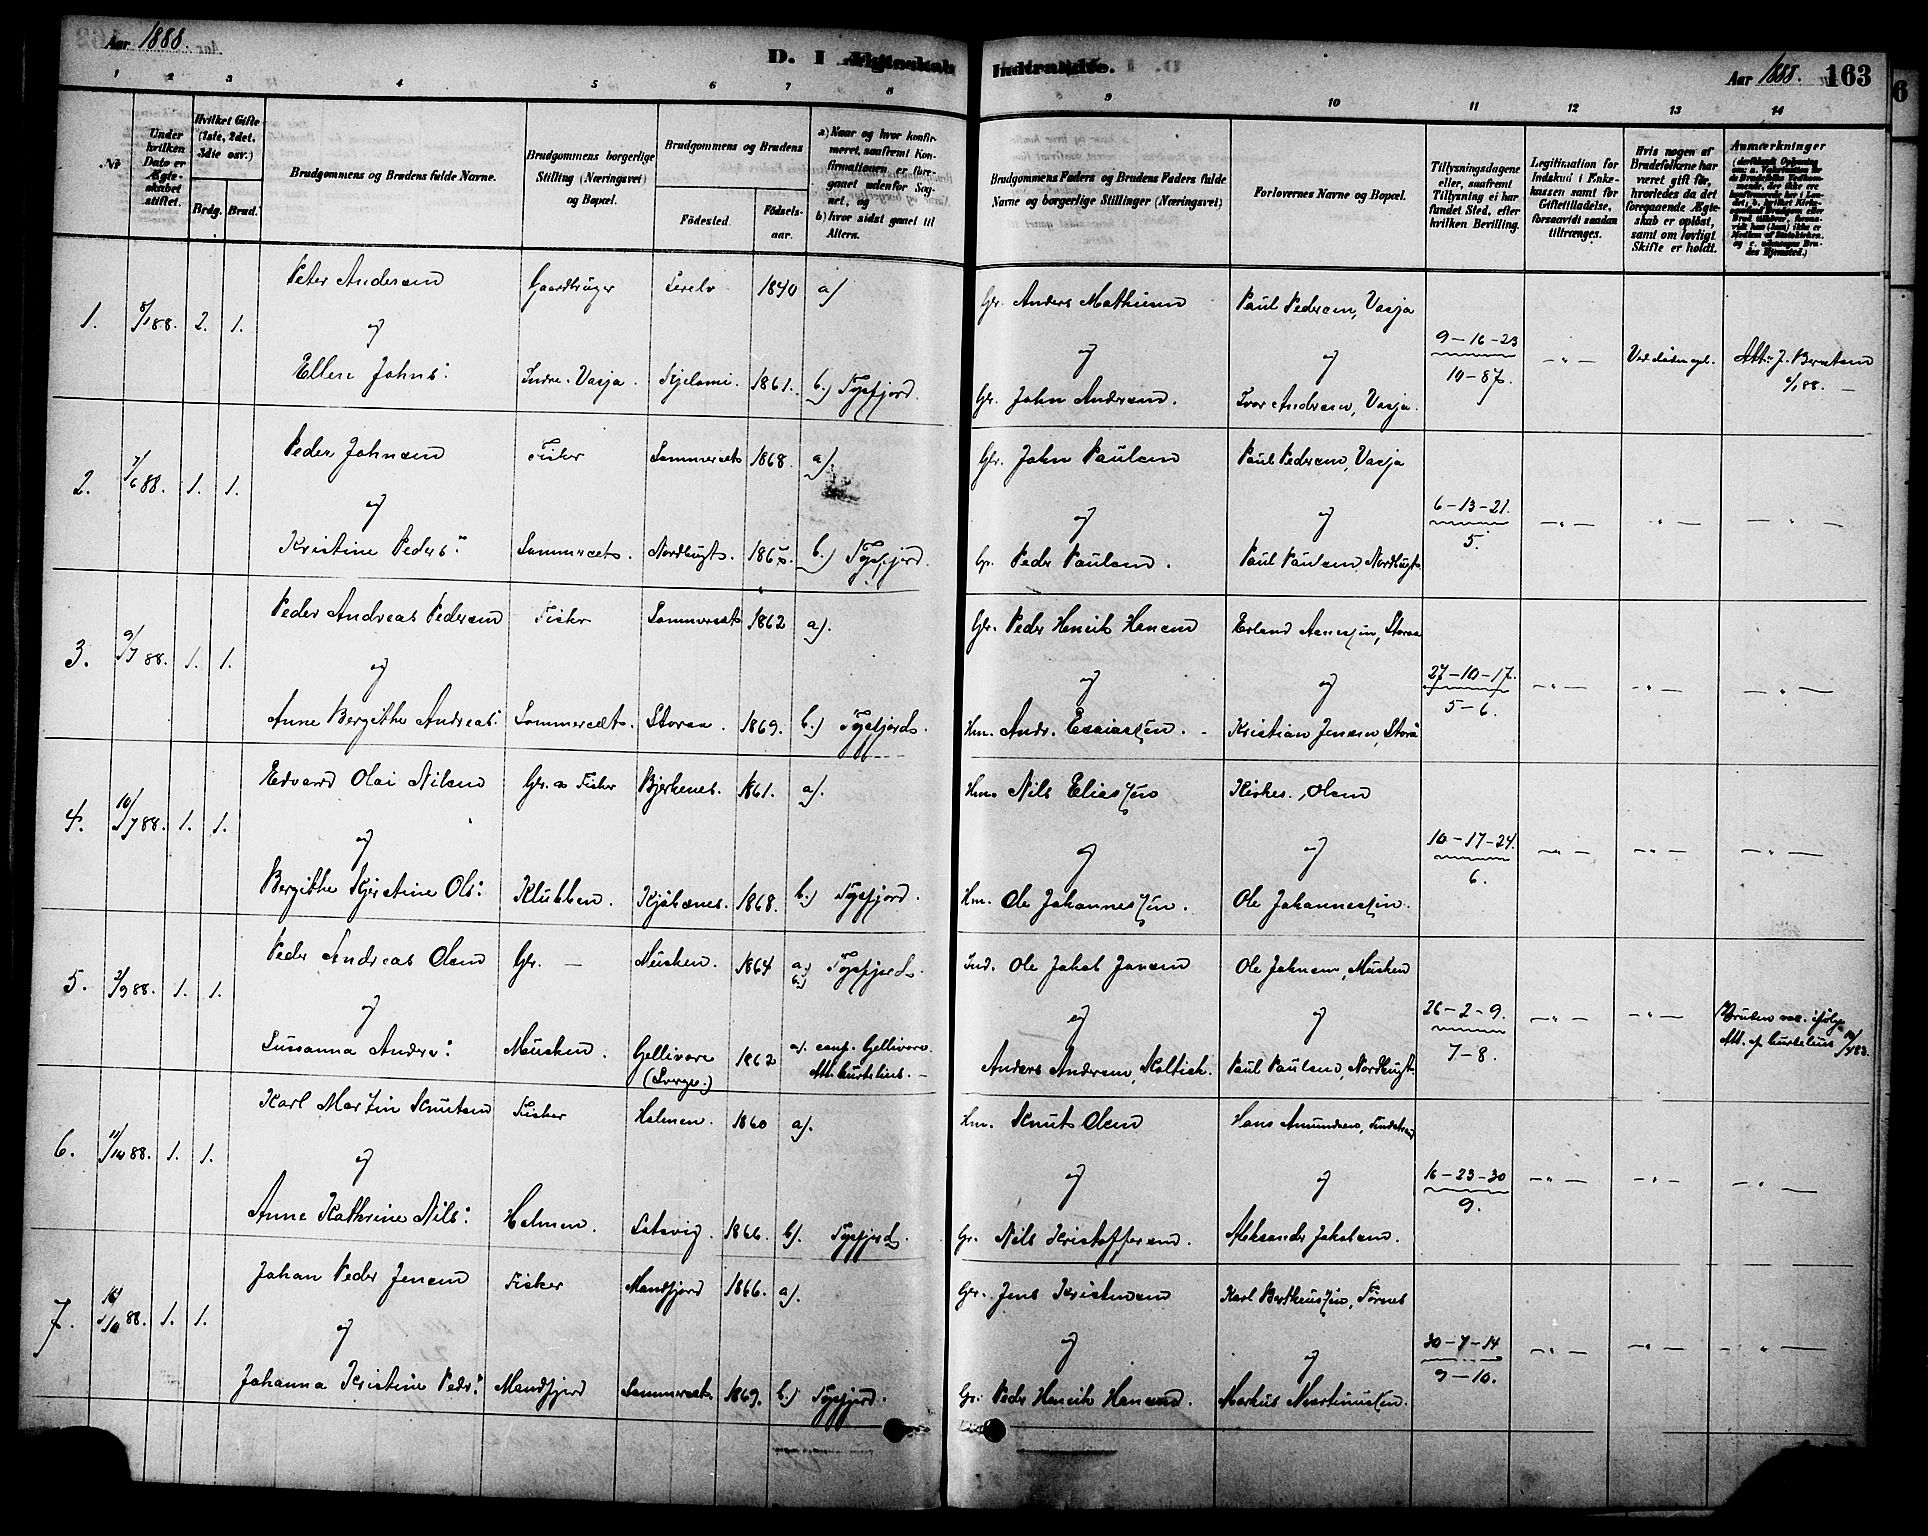 Aar 1888.
D. I Ægteskab Indtraadte.
Aar 1888. 163
1 2 3 4 5 6 7 8 9 10 11 12 13 14
No
Under hvilken Dato er Ægteskabet stiftet.
Hvilket Gifte (1ste, 2det, 3die osv.)
Brdg. Brud.
Brudgommens og Brudens fulde Navne.
Brudgommens borgerlige Stilling (Næringsvei) og Bopæl.
Brudgommens og Brudens
Fødested. Fødselsaar.
a) Naar og hvor konfirmeret, saafremt Konfirmationen er foregaaet udenfor Sognet, og
b) hvor sidst gaaet til Alters.
Brudgommens Faders og Brudens Faders fulde Navne og borgerlige Stillinger (Næringsvei)
Forlovernes Navne og Bopæl.
Tillysningsdagene eller, saafremt Tillysning ei har fundet Sted, efter hvilken Bevilling.
Legitimation for Indskud i Enkekassen samt for Giftetilladelse, forsaavidt saadan tiltrænges.
Hvis nogen af Brudefolkene har været gift før, hvorledes da det foregaaende Ægteskab er opløst, samt om lovligt Skifte er holdt.
Anmærkninger
1. 8/1 88. 2. 1. Peter Andersen Gaardbruger 1840 a) Gbr. Anders Mathisen Paul Pedersen, Vasja
og og og 9-16-23
Ellen Johns: Indre-Vasja. 1861. b.) Tysfjord. Gbr. John Andersen. Ivar Andersen, Vasja. 10-87.
Att: J. Berntsen
2. 7/6 88. 1. 1. Peder Johnsen Fisker Sommersæt 1868. a). Gbr. John Paulsen Paul Pedersen, Vasja
og og og 6-13-21.
Kristine Peders: Sommersæt. Nordbugt. b.) Tysfjord. Gbr. Peder Paulsen. Paul Paulsen, Nordbugt 5.
3. 9/7 88. 1. 1. Peder Andreas Pedersen Fisker Sommersæt 1862 a). Gbr. Peder Henrik Hansen Erland Storaa
og og og 27-10-17.
Anne Bergithe Andreas: Sommersæt. Storaa. 1869. b.) Tysfjord. Hm. Andr. Esaiassen. Kristian Jensen, Storå 5-6.
4. 10/7 88. 1. 1. Edvard Olai Nilsen Gbr. og Fisker Bjerkenes. 1861. a). Hm. Nils Eliassen Olsen
og og og 10-17-24.
Bergithe Kjerstine Ols: Klubben. Kjøbsnes. 1868. b.) Tysfjord. Hm. Ole Johannessen. Ole Johannessen. 6.
5. 2/9 88. 1. 1. Peder Andreas Olsen Gbr. — Musken. 1864 a) b.) Tysfjord. Ind. Ole Jakob Jonsen Ole Johnsen, Musken
og og og 26-2-9.
Sussanna Anders: Musken. Gellivare (Sverge.) 1862 a. conf. Gellivare. Anders Andersen, Paul Paulsen, Nordbugt 7-8.
6. 88. 1. 1. Karl Martin Knutsen Fisker Holmen. 1860 a). Hm. Knut Olsen Hans Amundsen,
og og og 16-23-30
Anne Kathrine Nils: Holmen. 1866. b). Tysfjord. Gbr. Nils Kristoffersen. Aleksander Jakobsen. 9.
7. 88. 1. 1. Johan Peder Jensen Fisker Mandfjord 1866. a). Gbr. Jens Kristensen Karl Bertheussen,
og og og 30-7-14
Johanna Kristine Pedr: Mandfjord Sommersæt. 1869. b.) Tysfjord. Gbr. Peder Henrik Hansen. Markus Martinussen. 9-10.